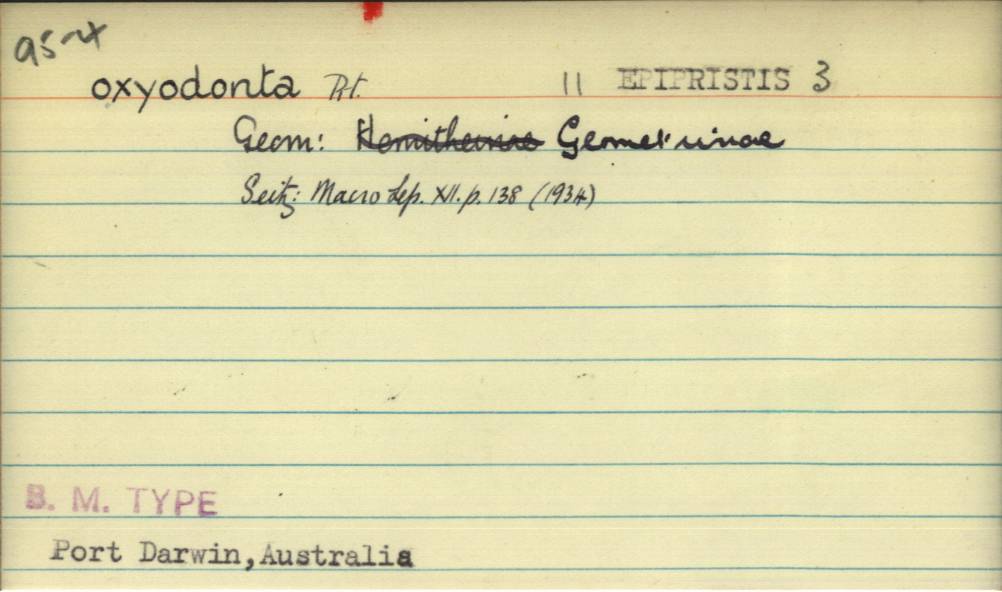 oxyodonta Prt. 11 EPIPRISTIS 3
Geom: Hemitheinae Geometrinae
Seitz: Macro Lep. XII. p. 138 (1934)
B. M. TYPE
Port Darwin, Australia